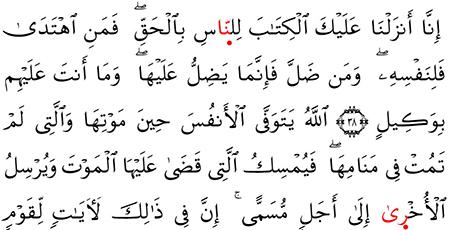 إِنَّا أَنزَلْنَا عَلَيْكَ اَلْكِتَٰبَ لِلنَّاسِ بِالْحَقِّۖ فَمَنِ اِهْتَدَىٰ
فَلِنَفْسِهِۦۖ وَمَن ضَلَّ فَإِنَّمَا يَضِلُّ عَلَيْهَاۖ وَمَا أَنتَ عَلَيْهِم
بِوَكِيلٍ ﴿٣٨﴾ اَللَّهُ يَتَوَفَّى اَلْأَنفُسَ حِينَ مَوْتِهَا وَالَّتِى لَمْ
تَمُتْ فِى مَنَامِهَاۖ فَيُمْسِكُ اُلَّتِى قَضَىٰ عَلَيْهَا اَلْمَوْتَ وَيُرْسِلُ
اُلْأُخْرىٰ إِلَىٰ أَجَلٍ مُّسَمًّىۚ إِنَّ فِى ذَٰلِكَ لَأٓيَٰتٍ لِّقَوْمٍ